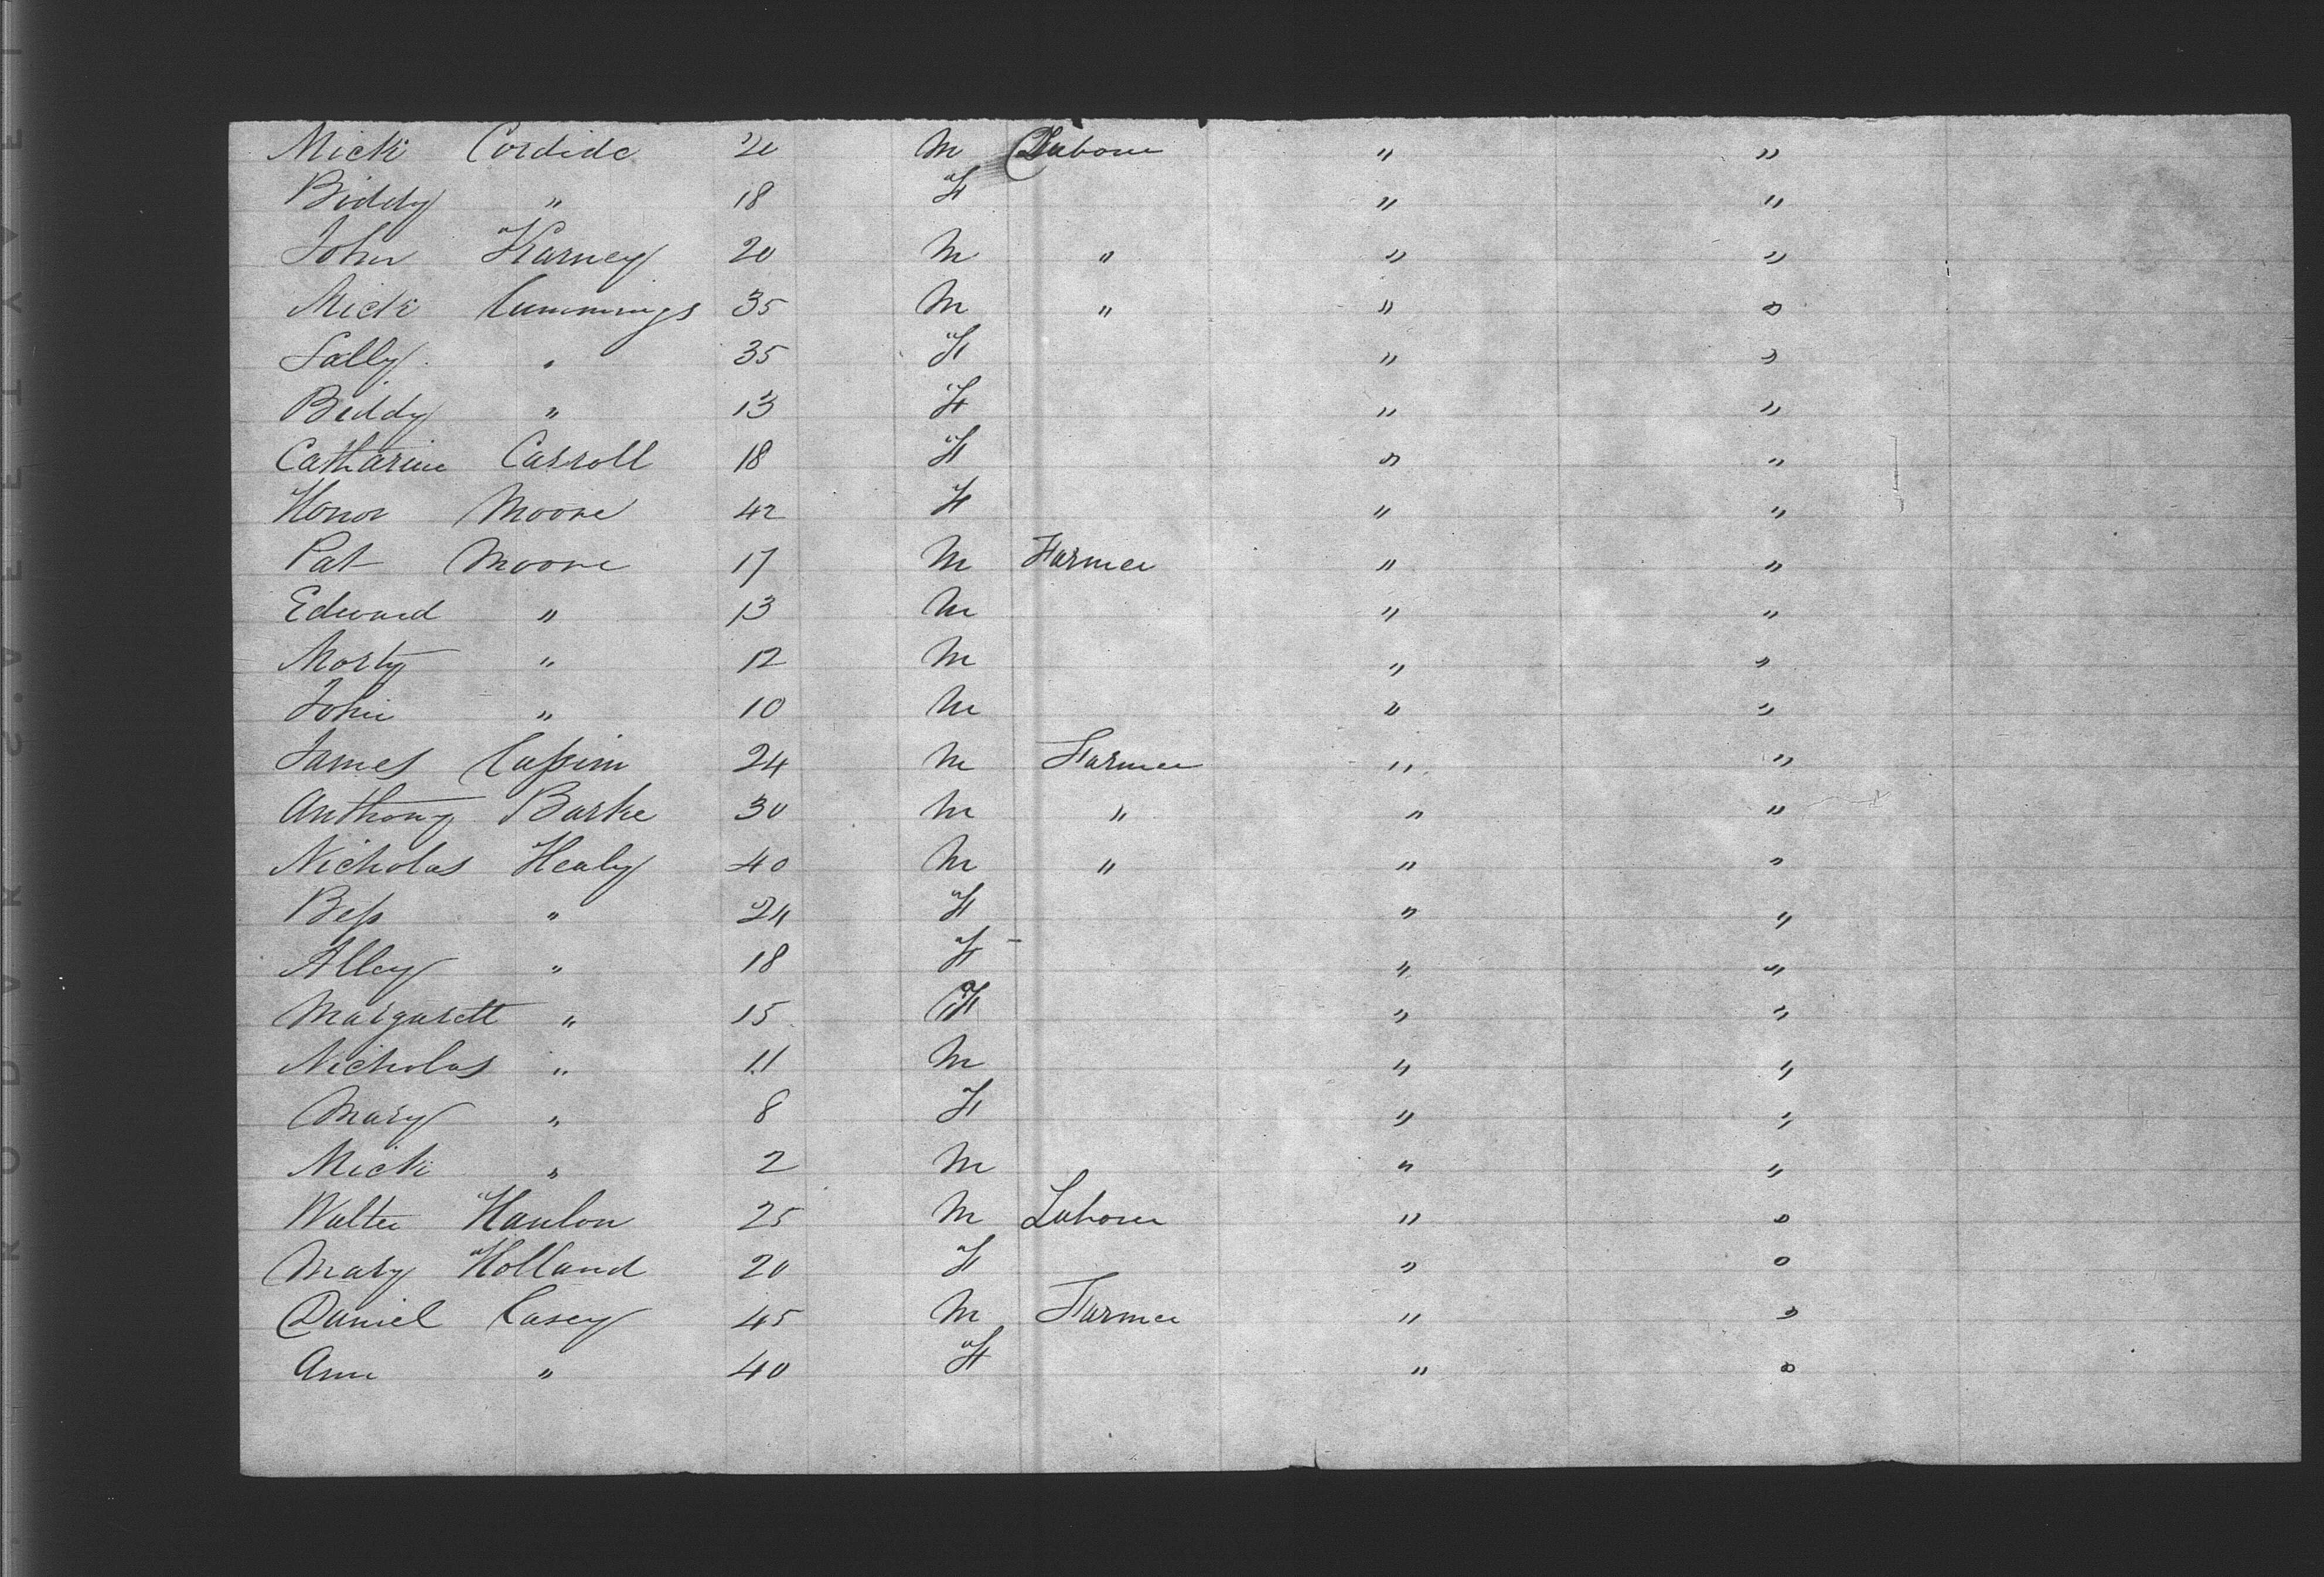 Mick Cordide 20 M Labour " "
Biddy " 18 F " "
John Karney 20 M " " "
Mick Cummings 35 M " " "
Sally " 35 F " "
Biddy " 13 F " "
Catharine Carroll 18 F " "
Honor Moore 42 F " "
Pat Moore 17 M Farmer " "
Edward " 13 M " "
Morty " 12 M " "
John " 10 M " "
James 24 M Farmer " "
Anthony Burke 30 M " " "
Nicholas Healy 40 M " " "
Bess " 24 F " "
Alley " 18 F " "
Margarett " 15 F " "
Nicholas " 11 M " "
Mary " 8 F " "
Mick " 2 M " "
Walter Hanlon 25 M Labour " "
Mary Holland 20 F " "
Daniel Casey 45 M Farmer " "
Ann " 40 F " "